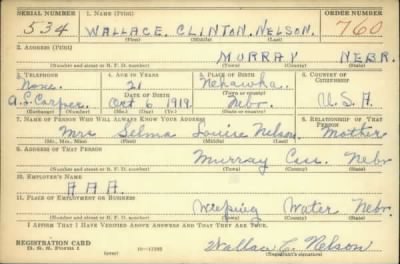 SERIAL NUMBER 1. NAME (Print) ORDER NUMBER
534 WALLACE. CLINTON. NELSON. 760
(First) (Middle) (Last)
2. ADDRESS (Print)
MURRAY NEBR.
(Number and street or R. F. D. number) (Town) (County) (State)
3. TELEPHONE 4. AGE IN YEARS 5. PLACE OF BIRTH 6. COUNTRY OF CITIZENSHIP
None. 21 Nehawka.
DATE OF BIRTH (Town or county)
Oct 6 1919. Nebr. U.S.A.
(Exchange) (Number) (Mo.) (Day) (Yr.) (State or country)
7. NAME OF PERSON WHO WILL ALWAYS KNOW YOUR ADDRESS 8. RELATIONSHIP OF THAT PERSON
Mrs Selma Louise Nelson. Mother
(Mr., Mrs., Miss) (First) (Middle) (Last)
9. ADDRESS OF THAT PERSON
Murray Cass. Nebr
(Number and street or R. F. D. number) (Town) (County) (State)
10. EMPLOYER'S NAME
A A A.
11. PLACE OF EMPLOYMENT OR BUSINESS
Weeping Water Nebr.
(Number and street or R. F. D. number) (Town) (County) (State)
I AFFIRM THAT I HAVE VERIFIED ABOVE ANSWERS AND THAT THEY ARE TRUE.
REGISTRATION CARD
D. S. S. Form 1 (over) Wallace C. Nelson